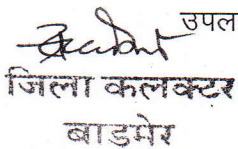 उपल
जिला कलक्टर
बाडमेर